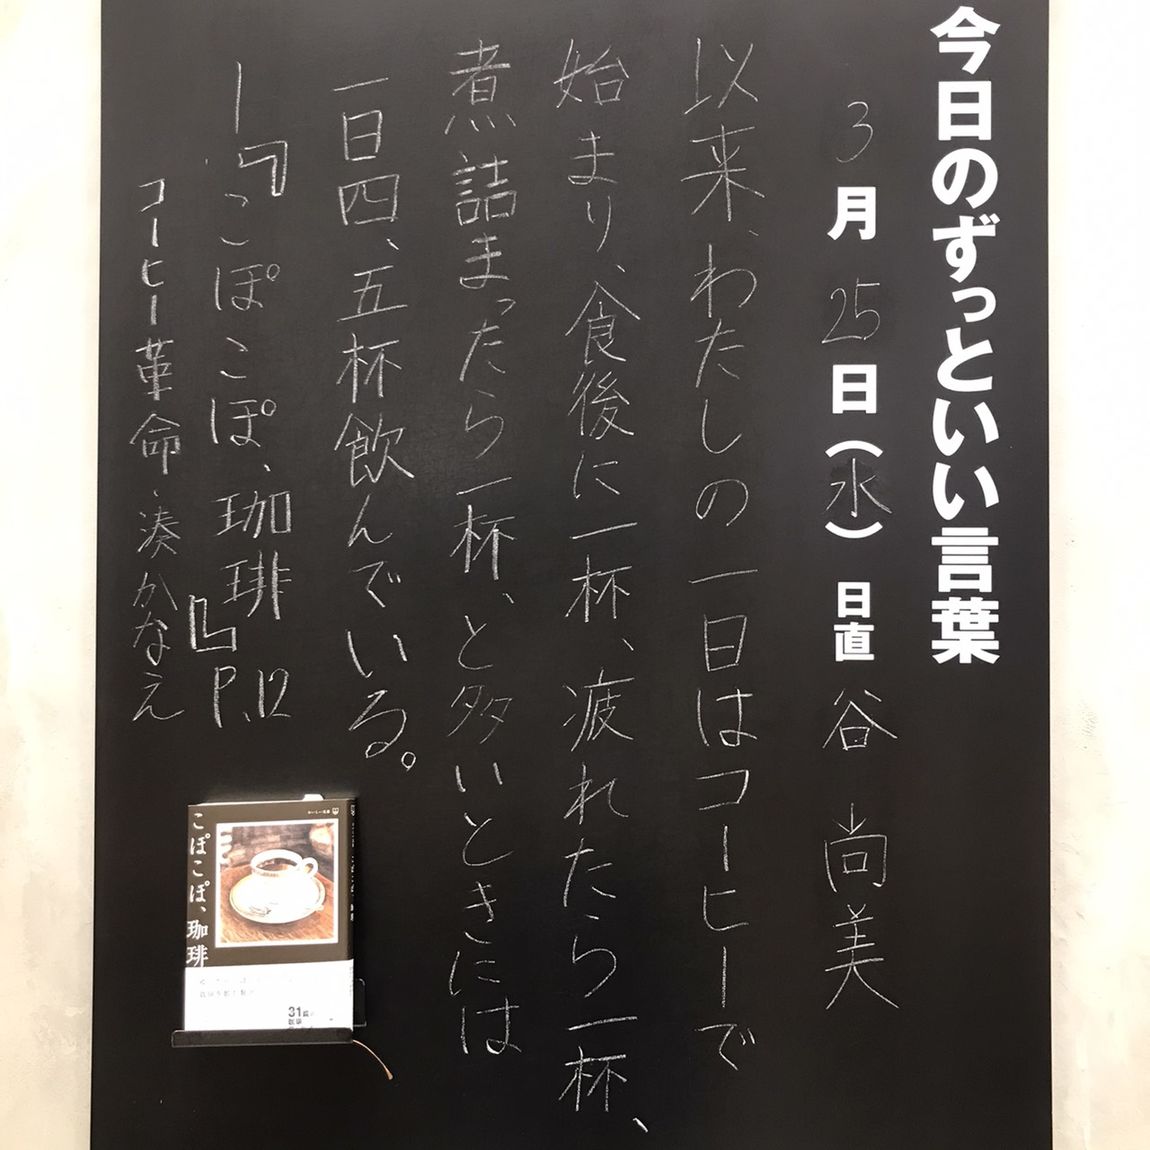 今日のずっといい言葉
3月25日(水) 日直 谷 尚美
以来、わたしの一日はコーヒーで
始まり、食後に一杯、疲れたら一杯、
煮詰まったら一杯、と多いときには
一日四、五杯飲んでいる。
―『こぽこぽ、珈琲』P.12
コーヒー革命・湊かなえ
こぽこぽ、珈琲
31篇